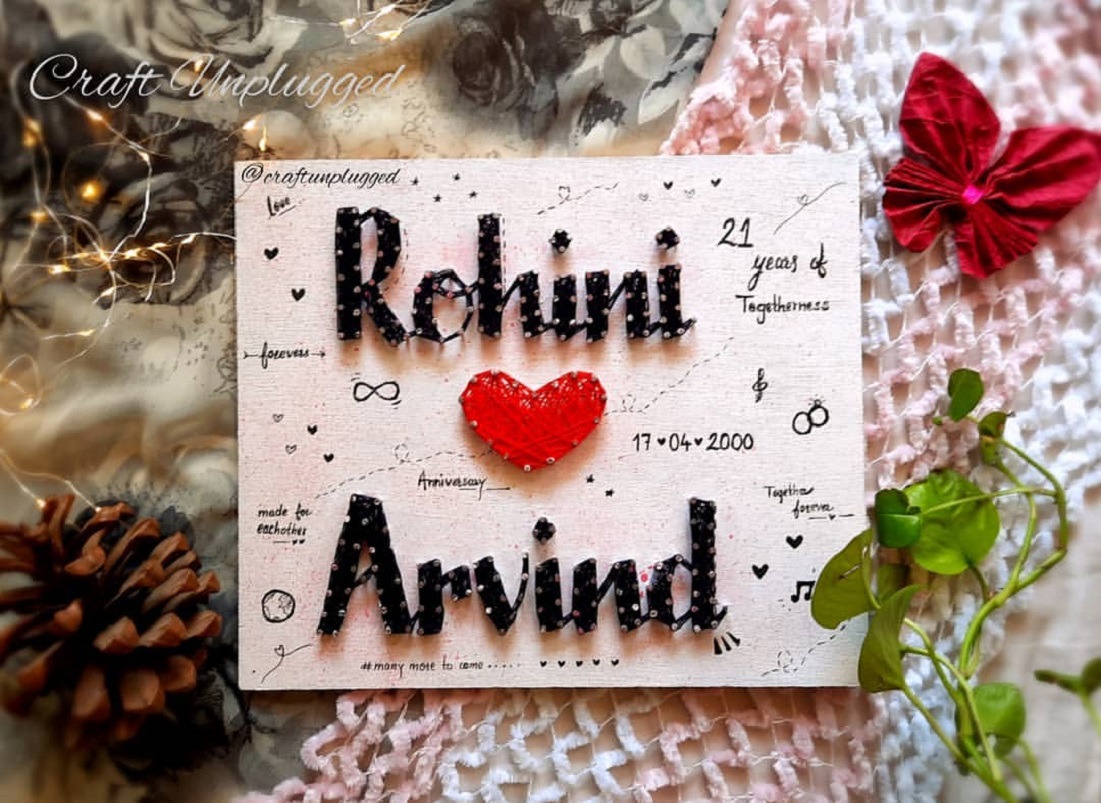 Craft Unplugged
@craftunplugged
Love
Rohini
21
years of
Togetherness
forevers
17 04 2000
Anniversary
made for
eachother
Together
forever
Arvind
#many more to come .....